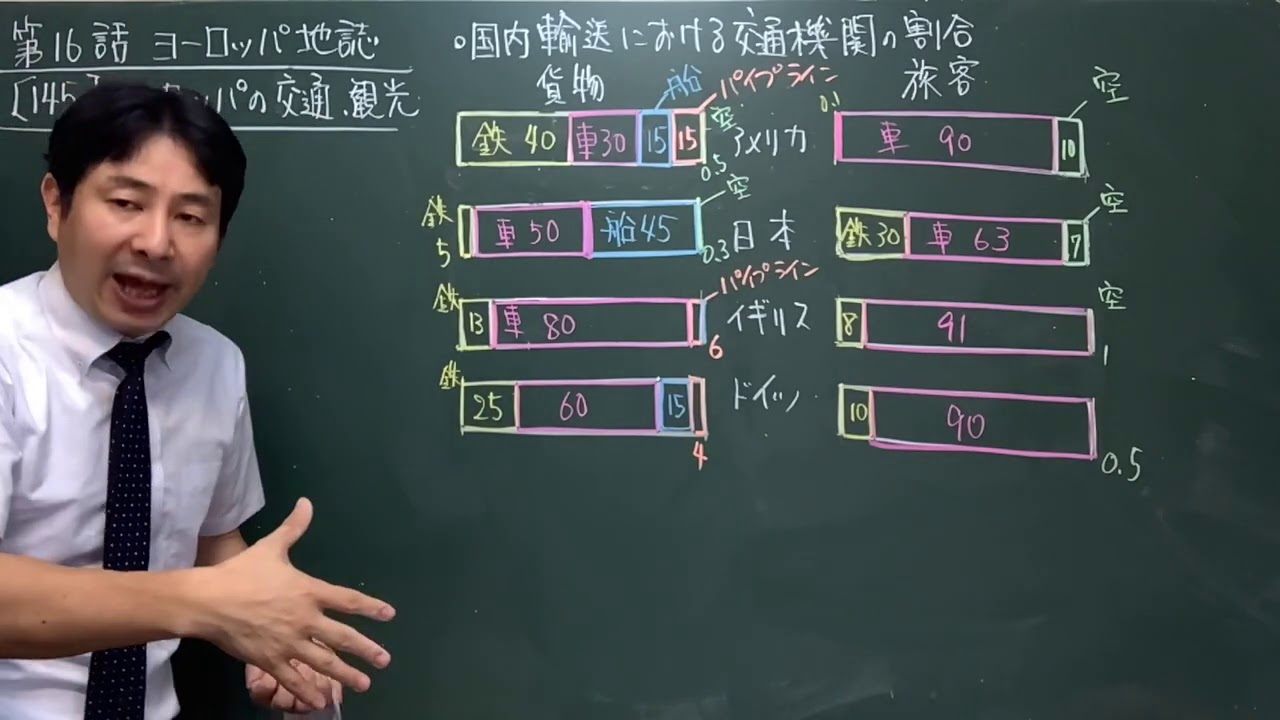 第16話 ヨーロッパ地誌
[145] ッパの交通、観光
。国内輸送における交通機関の割合
貨物 旅客
船 パイプライン
鉄40 車30 15 15 空 0.5 アメリカ 0.1 車 90 10 空
鉄 5 車 50 船 45 空 0.3 日本 鉄30 車 63 7 空
鉄 13 車 80 パイプライン 6 イギリス 8 91 空 1
鉄 25 60 15 4 ドイツ 10 90 0.5